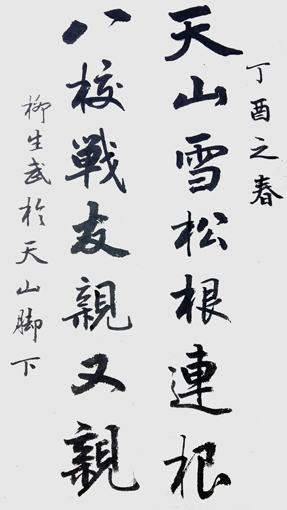 丁酉之春
天山雪松根連根
八校戰友親又親
柳生武於天山腳下